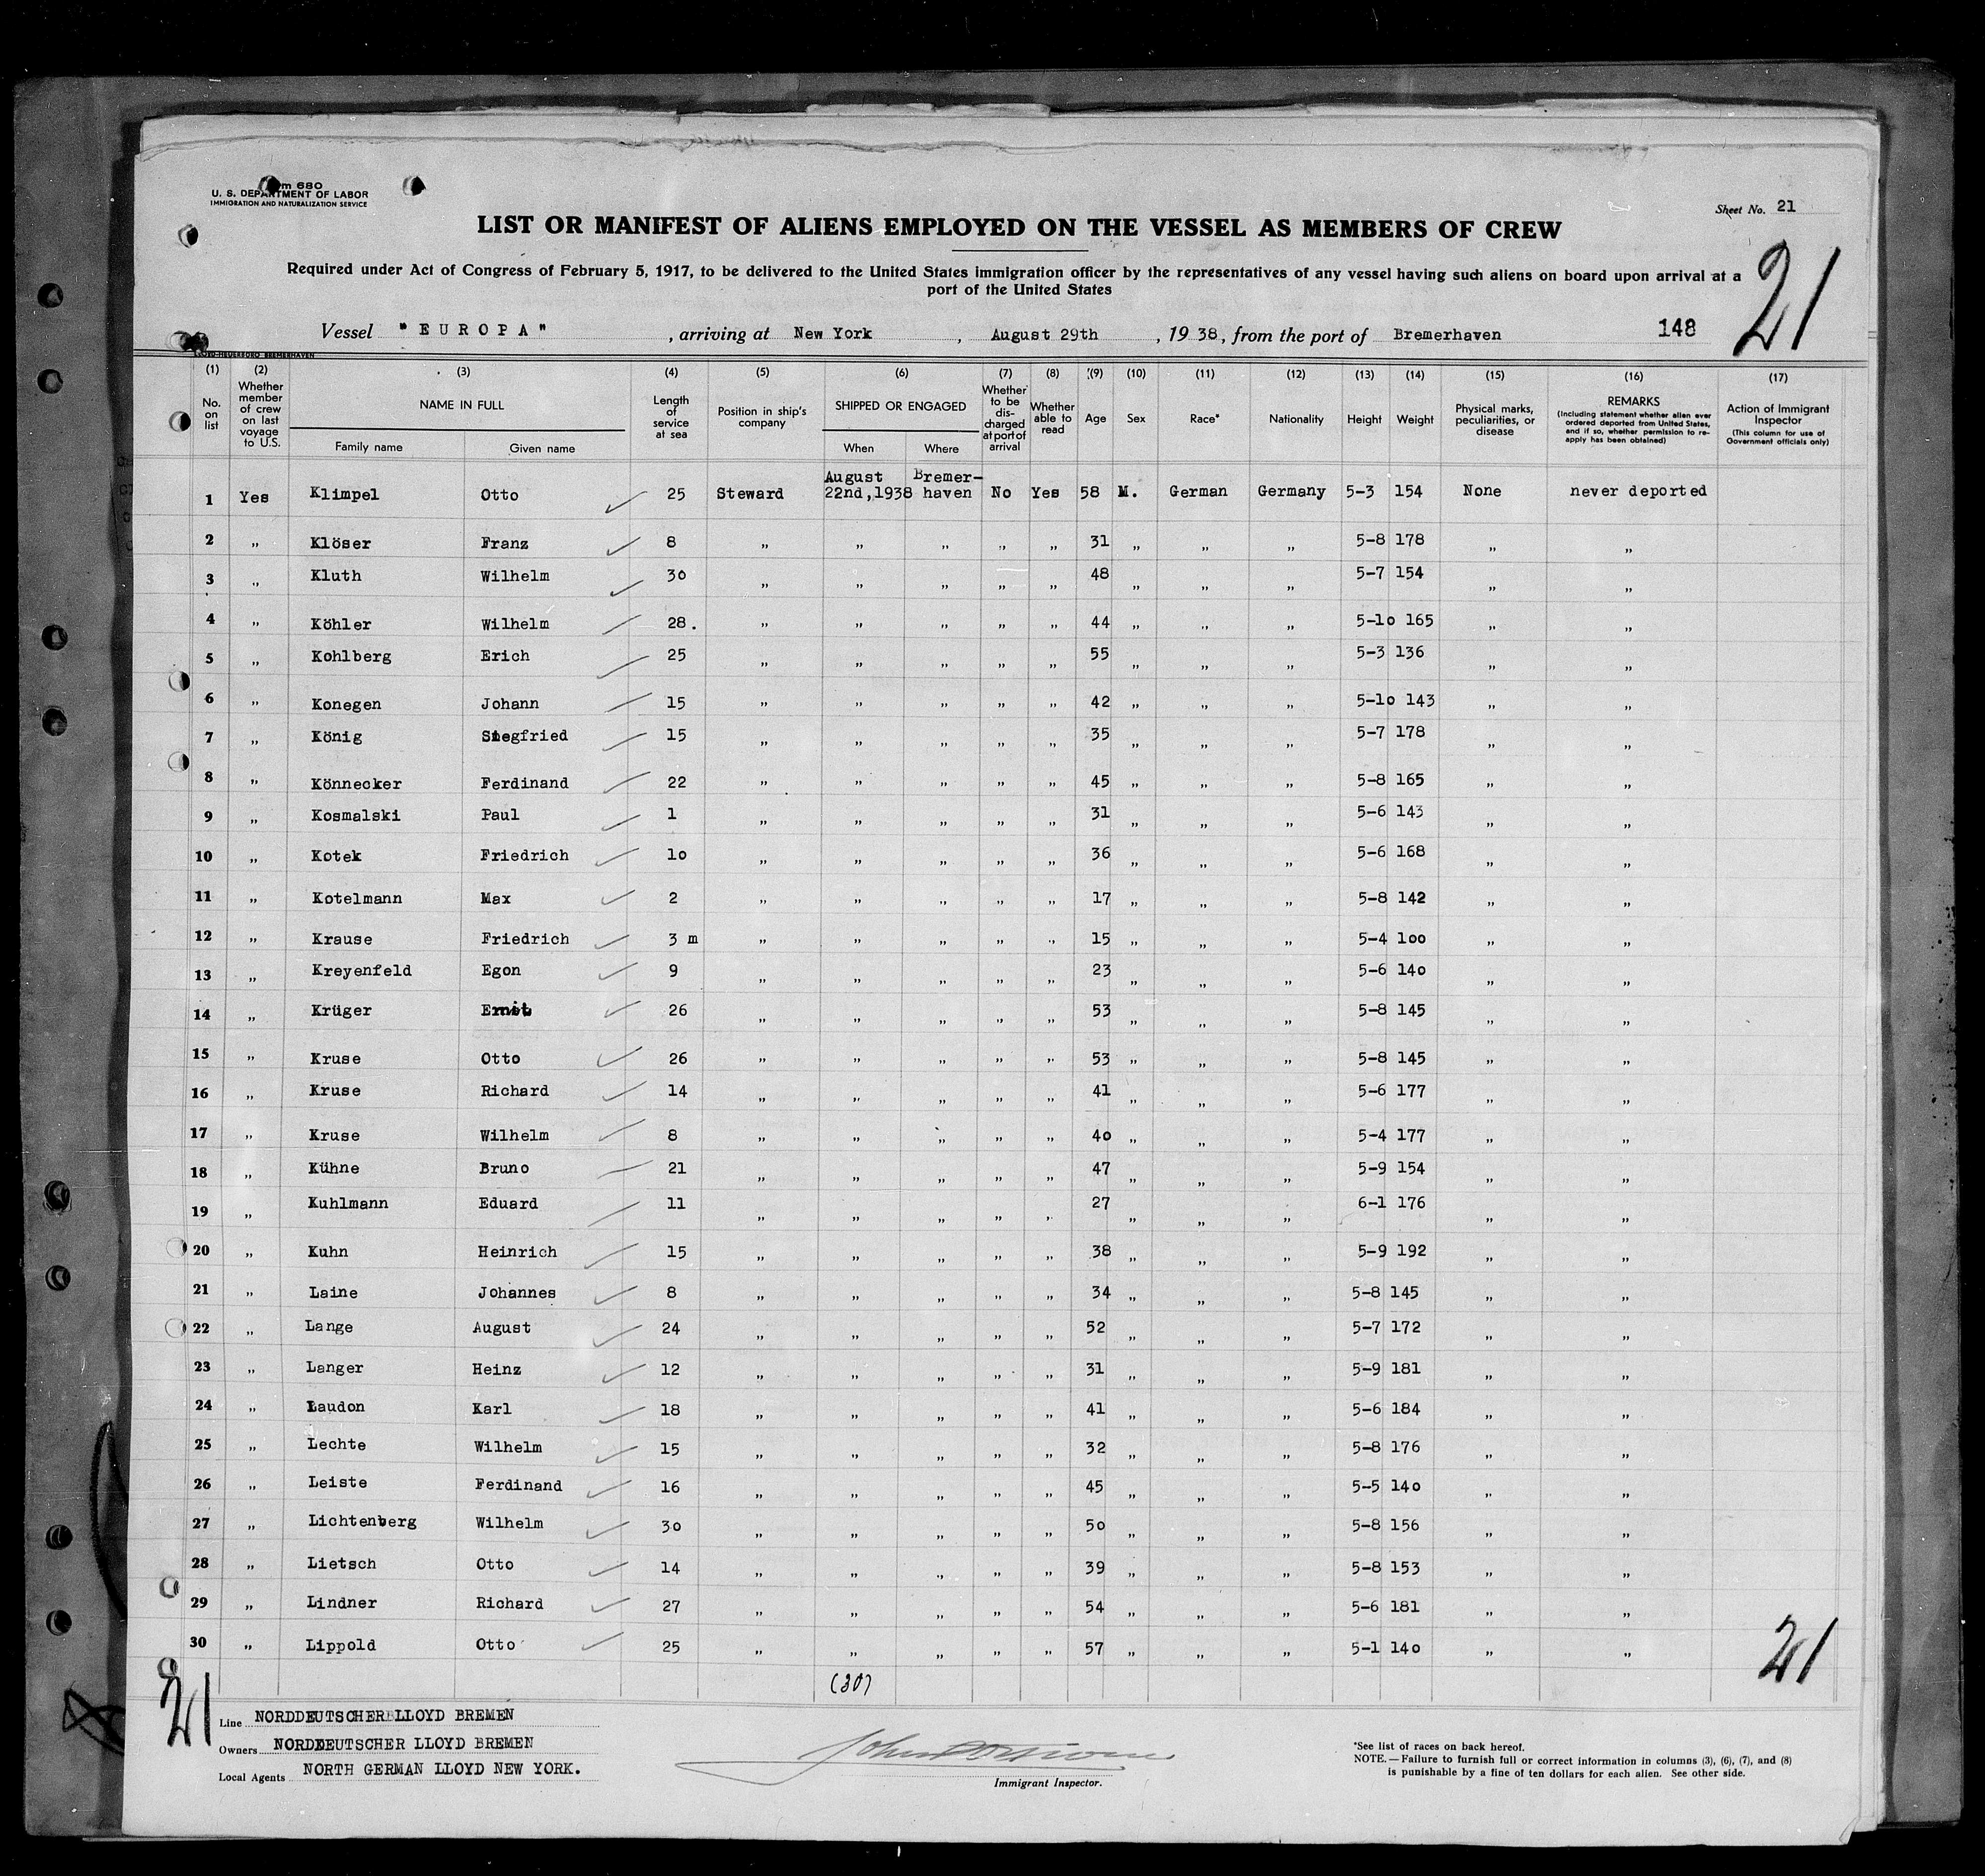 Form 680
U. S. DEPARTMENT OF LABOR
IMMIGRATION AND NATURALIZATION SERVICE
Sheet No. 21
LIST OR MANIFEST OF ALIENS EMPLOYED ON THE VESSEL AS MEMBERS OF CREW
21
Required under Act of Congress of February 5, 1917, to be delivered to the United States immigration officer by the representatives of any vessel having such aliens on board upon arrival at a
port of the United States
Vessel "EUROPA" , arriving at New York , August 29th , 19 38, from the port of Bremerhaven 148
LLOYD-HEUERBÜRO BREMERHAVEN
(1) No. on list
(2) Whether member of crew on last voyage to U.S.
(3) NAME IN FULL
Family name Given name
(4) Length of service at sea
(5) Position in ship's company
(6) SHIPPED OR ENGAGED
When Where
(7) Whether to be discharged at port of arrival
(8) Whether able to read
(9) Age
(10) Sex
(11) Race*
(12) Nationality
(13) Height
(14) Weight
(15) Physical marks, peculiarities, or disease
(16) REMARKS
(Including statement whether alien ever ordered deported from United States, and if so, whether permission to re-apply has been obtained)
(17) Action of Immigrant Inspector
(This column for use of Government officials only)
1 Yes Klimpel Otto 25 Steward August 22nd,1938 Bremer-haven No Yes 58 M. German Germany 5-3 154 None never deported
2 „ Klöser Franz 8 „ „ „ „ „ 31 „ „ „ 5-8 178 „ „
3 „ Kluth Wilhelm 30 „ „ „ „ „ 48 „ „ „ 5-7 154 „ „
4 „ Köhler Wilhelm 28. „ „ „ „ „ 44 „ „ „ 5-10 165 „ „
5 „ Kohlberg Erich 25 „ „ „ „ „ 55 „ „ „ 5-3 136 „ „
6 „ Konegen Johann 15 „ „ „ „ „ 42 „ „ „ 5-10 143 „ „
7 „ König Siegfried 15 „ „ „ „ „ 35 „ „ „ 5-7 178 „ „
8 „ Könnecker Ferdinand 22 „ „ „ „ „ 45 „ „ „ 5-8 165 „ „
9 „ Kosmalski Paul 1 „ „ „ „ „ 31 „ „ „ 5-6 143 „ „
10 „ Kotek Friedrich 10 „ „ „ „ „ 36 „ „ „ 5-6 168 „ „
11 „ Kotelmann Max 2 „ „ „ „ „ 17 „ „ „ 5-8 142 „ „
12 „ Krause Friedrich 3 m „ „ „ „ „ 15 „ „ „ 5-4 100 „ „
13 „ Kreyenfeld Egon 9 „ „ „ „ „ 23 „ „ „ 5-6 140 „ „
14 „ Krüger Ernst 26 „ „ „ „ „ 53 „ „ „ 5-8 145 „ „
15 „ Kruse Otto 26 „ „ „ „ „ 53 „ „ „ 5-8 145 „ „
16 „ Kruse Richard 14 „ „ „ „ „ 41 „ „ „ 5-6 177 „ „
17 „ Kruse Wilhelm 8 „ „ „ „ „ 40 „ „ „ 5-4 177 „ „
18 „ Kühne Bruno 21 „ „ „ „ „ 47 „ „ „ 5-9 154 „ „
19 „ Kuhlmann Eduard 11 „ „ „ „ „ 27 „ „ „ 6-1 176 „ „
20 „ Kuhn Heinrich 15 „ „ „ „ „ 38 „ „ „ 5-9 192 „ „
21 „ Laine Johannes 8 „ „ „ „ „ 34 „ „ „ 5-8 145 „ „
22 „ Lange August 24 „ „ „ „ „ 52 „ „ „ 5-7 172 „ „
23 „ Langer Heinz 12 „ „ „ „ „ 31 „ „ „ 5-9 181 „ „
24 „ Laudon Karl 18 „ „ „ „ „ 41 „ „ „ 5-6 184 „ „
25 „ Lechte Wilhelm 15 „ „ „ „ „ 32 „ „ „ 5-8 176 „ „
26 „ Leiste Ferdinand 16 „ „ „ „ „ 45 „ „ „ 5-5 140 „ „
27 „ Lichtenberg Wilhelm 30 „ „ „ „ „ 50 „ „ „ 5-8 156 „ „
28 „ Lietsch Otto 14 „ „ „ „ „ 39 „ „ „ 5-8 153 „ „
29 „ Lindner Richard 27 „ „ „ „ „ 54 „ „ „ 5-6 181 „ „
30 „ Lippold Otto 25 „ „ „ „ „ 57 „ „ „ 5-1 140 „ „
21
(30)
21
Line NORDDEUTSCHER LLOYD BREMEN
Owners NORDDEUTSCHER LLOYD BREMEN
Local Agents NORTH GERMAN LLOYD NEW YORK.
John
Immigrant Inspector.
*See list of races on back hereof.
NOTE.—Failure to furnish full or correct information in columns (3), (6), (7), and (8)
is punishable by a fine of ten dollars for each alien. See other side.